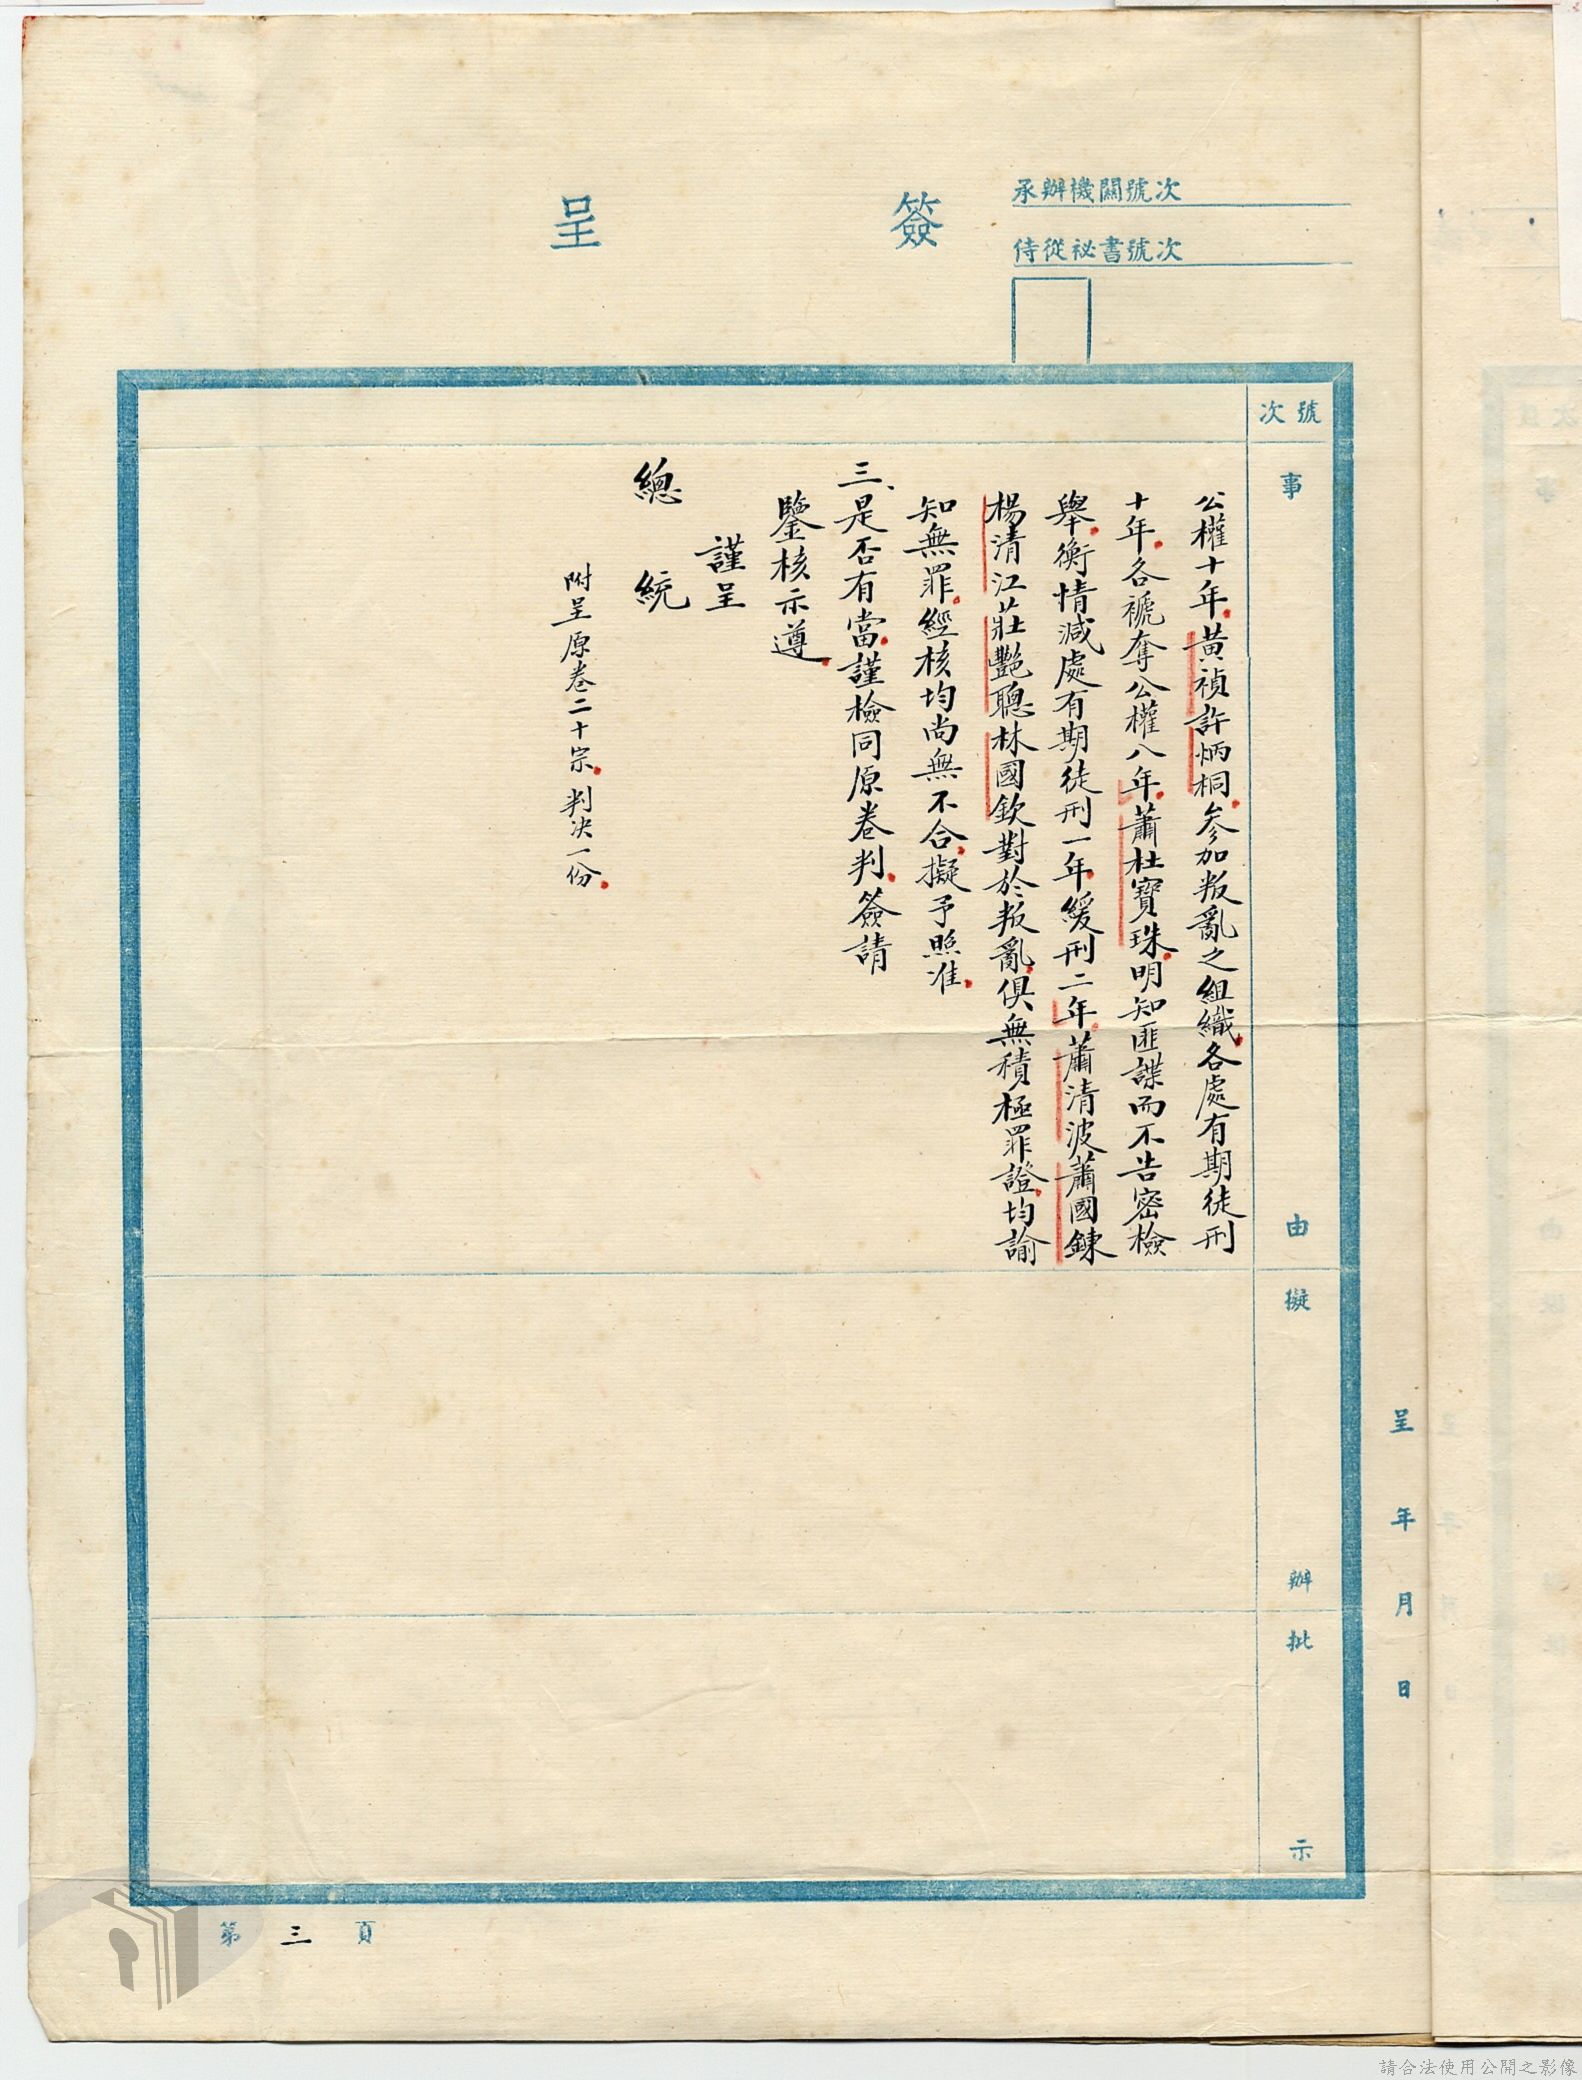 簽呈
承辦機關號次
侍從祕書號次
號次
事由
擬辦
批示
公權十年黃禎許炳桐參加叛亂之組織各處有期徒刑
十年各褫奪公權八年蕭杜寶珠明知匪諜而不告密檢
舉衡情減處有期徒刑一年緩刑二年蕭清波蕭國鍊
楊清江莊艷聰林國欽對於叛亂俱無積極罪證均諭
知無罪經核均尚無不合擬予照准
三、是否有當謹檢同原卷判簽請
鑒核示遵
謹呈
總統
附呈原卷二十宗判決一份
呈 年 月 日
第三頁
請合法使用公開之影像